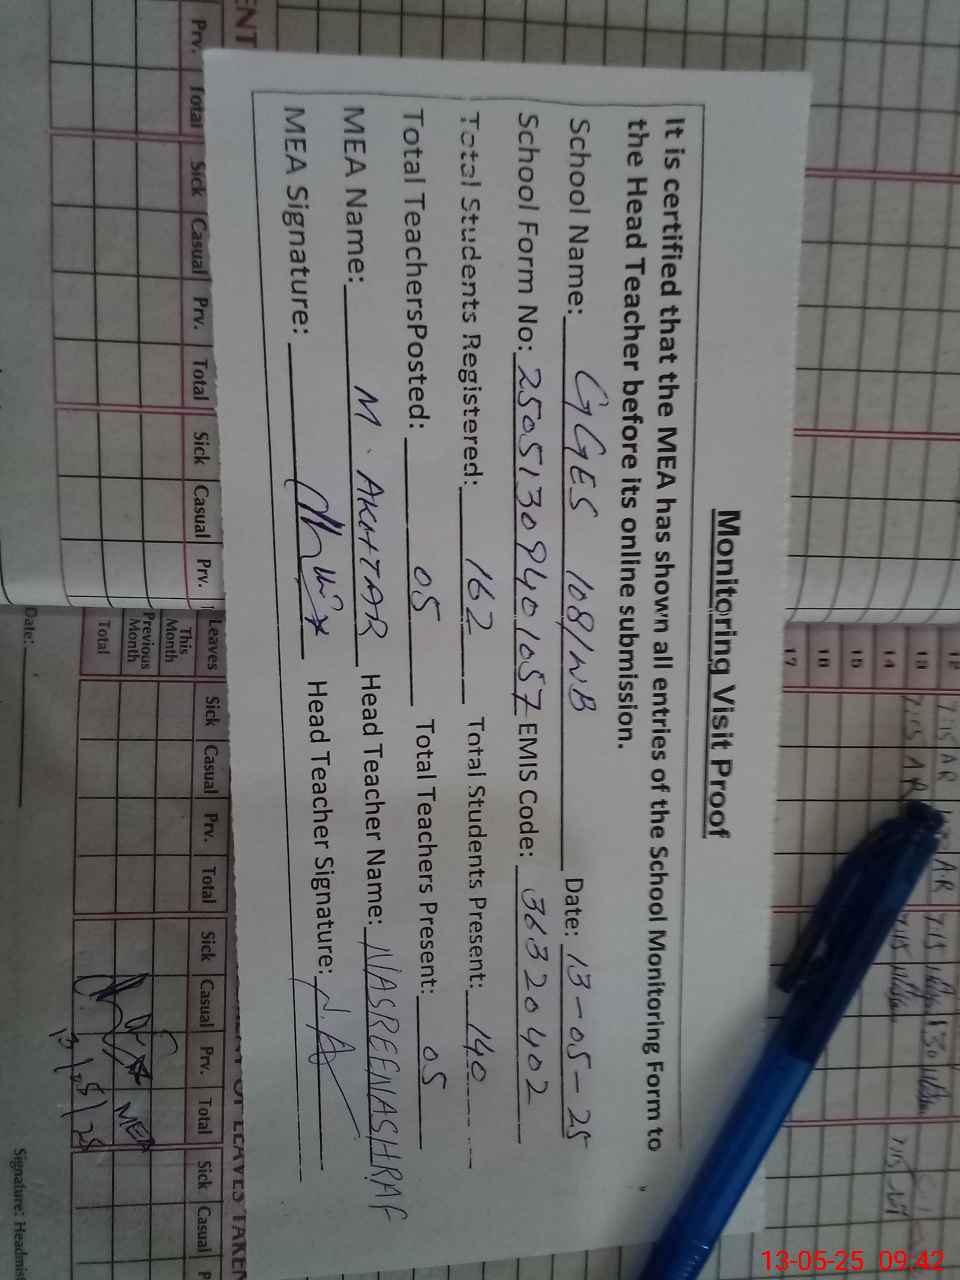 Monitoring Visit Proof
It is certified that the MEA has shown all entries of the School Monitoring Form to
the Head Teacher before its online submission.
School Name: GGES 108/WB Date: 13-05-25
School Form No: 25051309401057 EMIS Code: 36320402
Total Students Registered: 162 Total Students Present: 140
Total TeachersPosted: 05 Total Teachers Present: 05
MEA Name: M. AKHTAR Head Teacher Name: NASREENASHRAF
MEA Signature: Head Teacher Signature: N.A
12
13
14
15
16
17
7:15 AR
7:15 AR
Prv. Total Sick Casual Prv. Total Sick Casual Prv.
Leaves Sick Casual Prv. Total Sick Casual Prv. Total Sick Casual P
This Month
Previous Month
Total
OF LEAVES TAKEN
MEA
Date:
Signature: Headmist
13-05-25 09:42